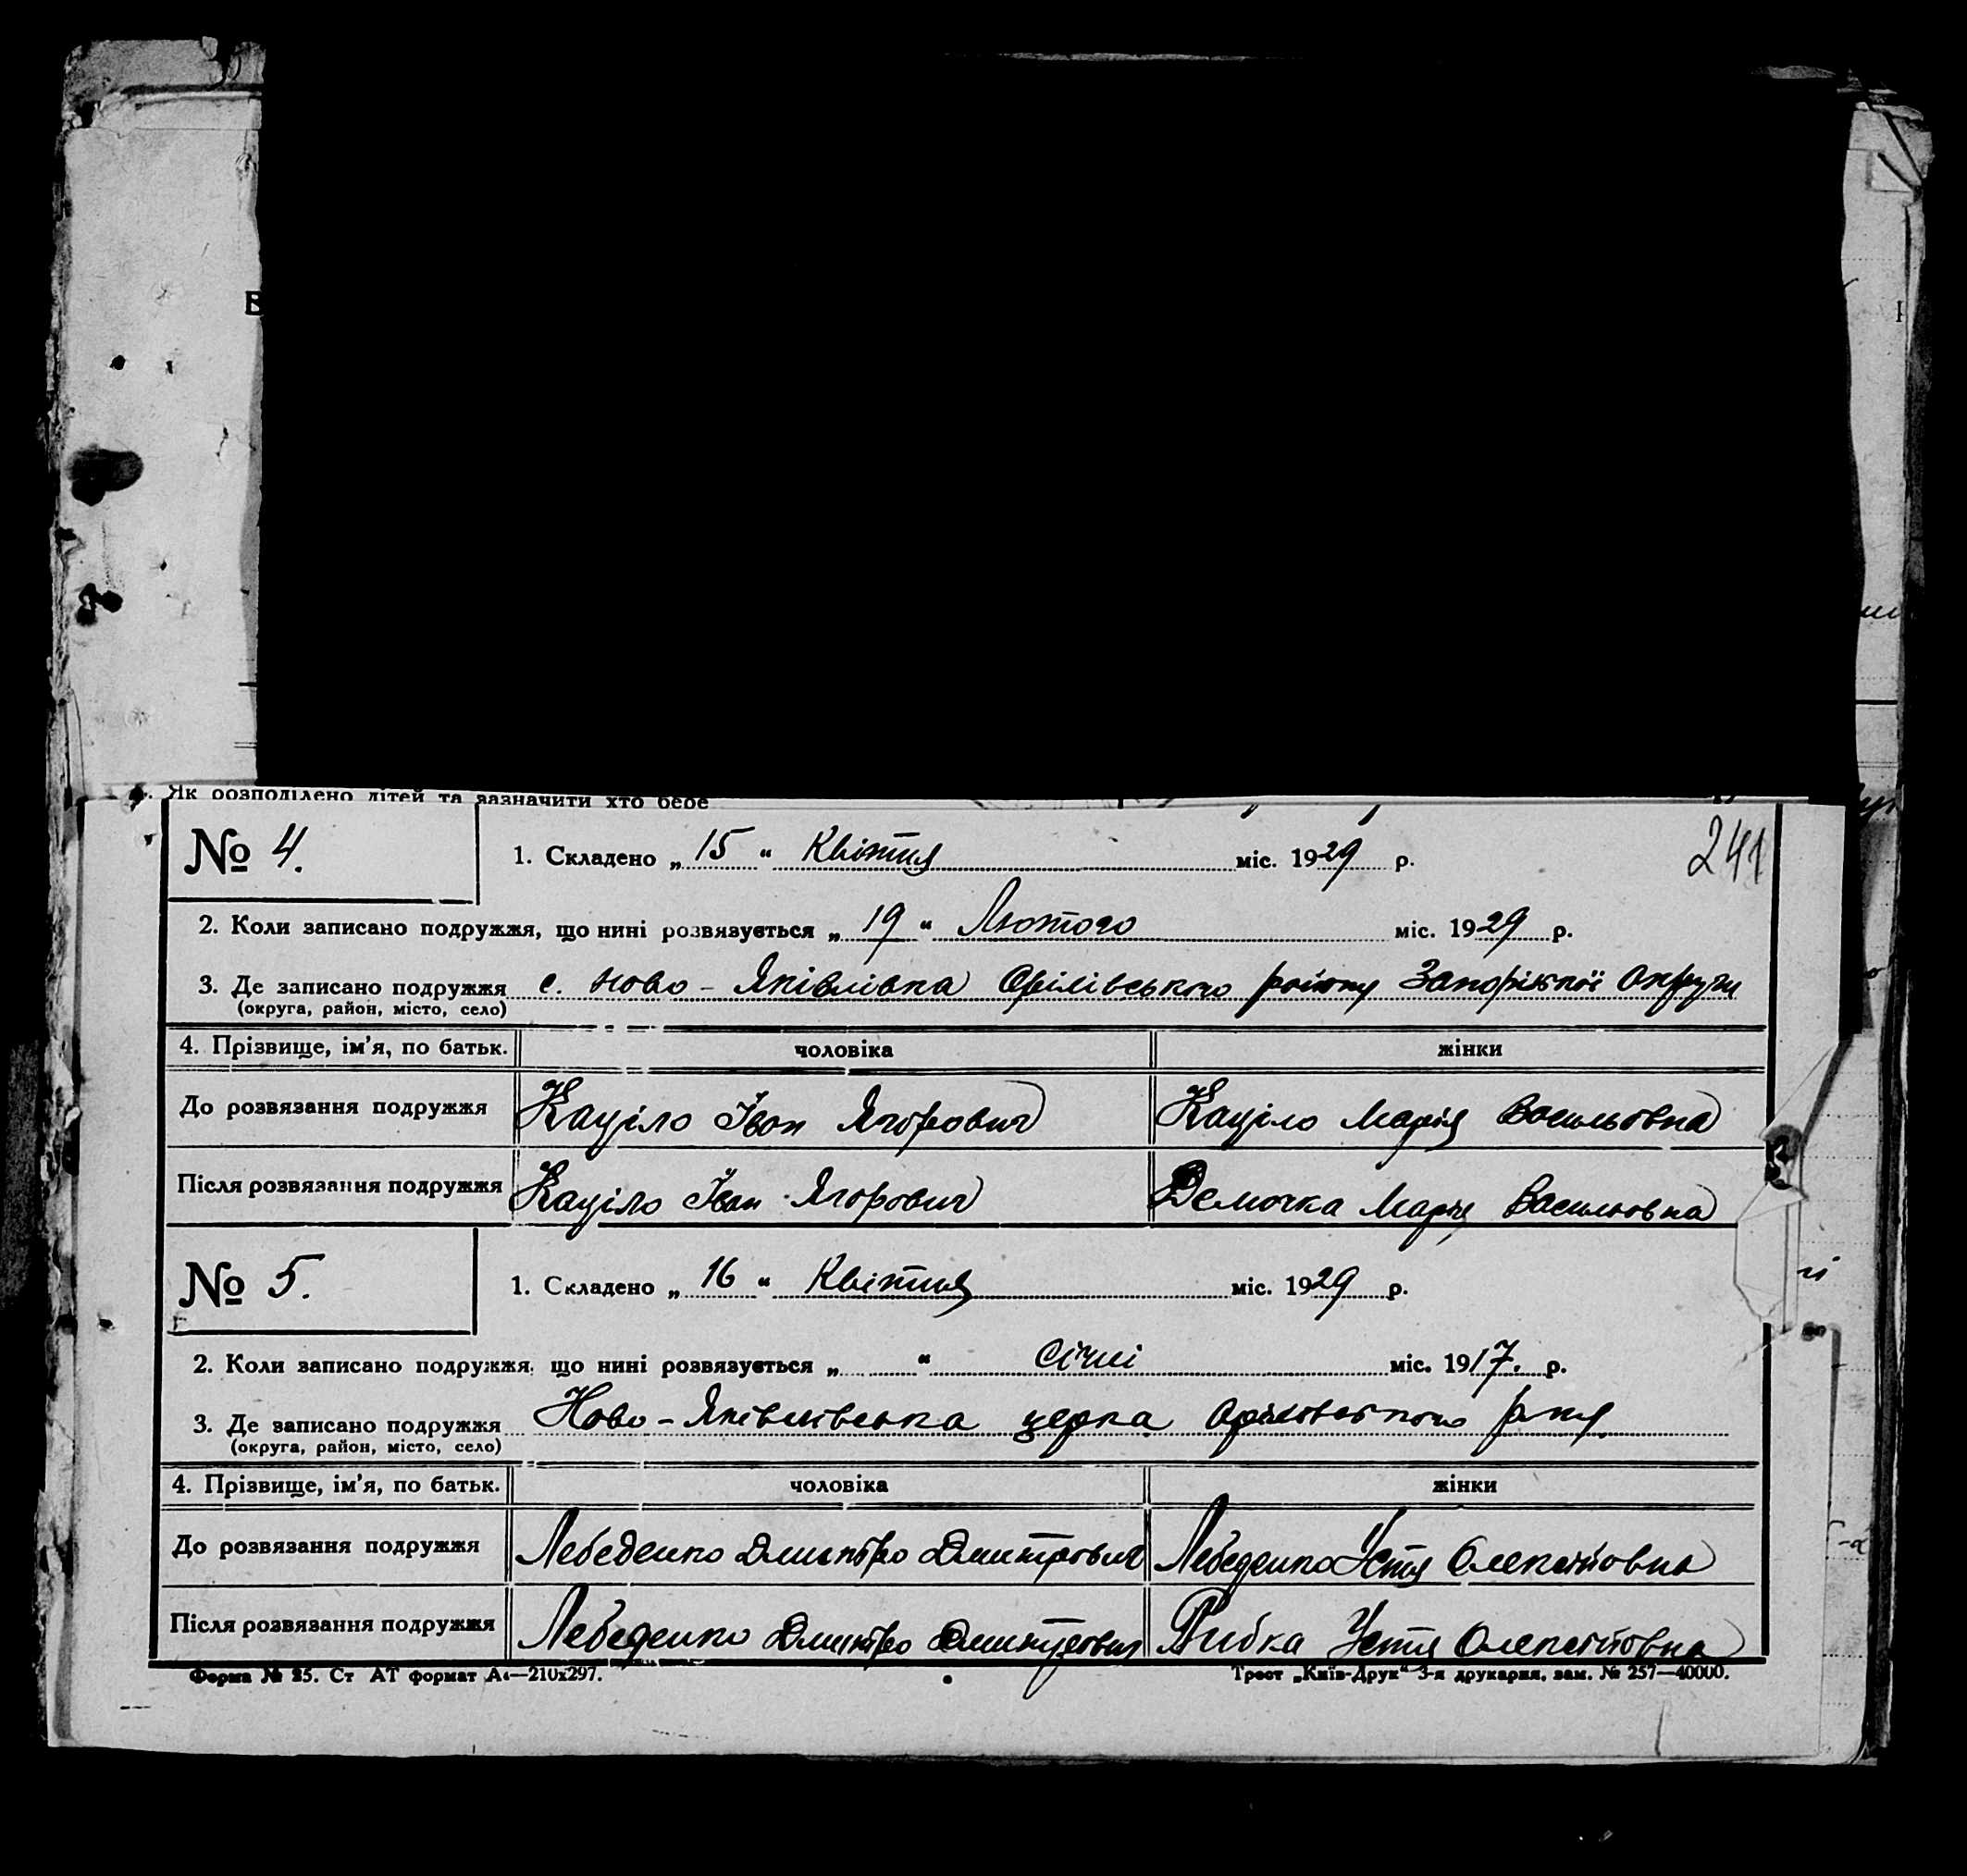 Як розподілено дітей та зазначити хто бере
№ 4.
1. Складено „ 15 " Квітня міс. 1929 р.
241
2. Коли записано подружжя, що нині розвязується „ 19 " Лютого міс. 1929 р.
3. Де записано подружжя с. Ново-Яківлівка Оріхівського району Запоріжкої Округи
(округа, район, місто, село)
4. Прізвище, ім'я, по батьк. чоловіка жінки
До розвязання подружжя Каціло Іван Ягорович Каціло Марія Васильовна
Після розвязання подружжя Каціло Іван Ягорович Демочка Марія Васильовна
№ 5.
1. Складено „ 16 " Квітня міс. 1929 р.
2. Коли записано подружжя, що нині розвязується „ " Січні міс. 1917. р.
3. Де записано подружжя Ново-Яківлівська церква р-ня
(округа, район, місто, село)
4. Прізвище, ім'я, по батьк. чоловіка жінки
До розвязання подружжя Лебеденко Дмитро Дмитрович Лебеденко Устя Олексіївна
Після розвязання подружжя Лебеденко Дмитро Дмитрович Рибка Устя Олексіївна
Форма № 25. Ст АТ формат А4—210x297.
Трест „Київ-Друк" 3-я друкарня, зам. № 257—40000.